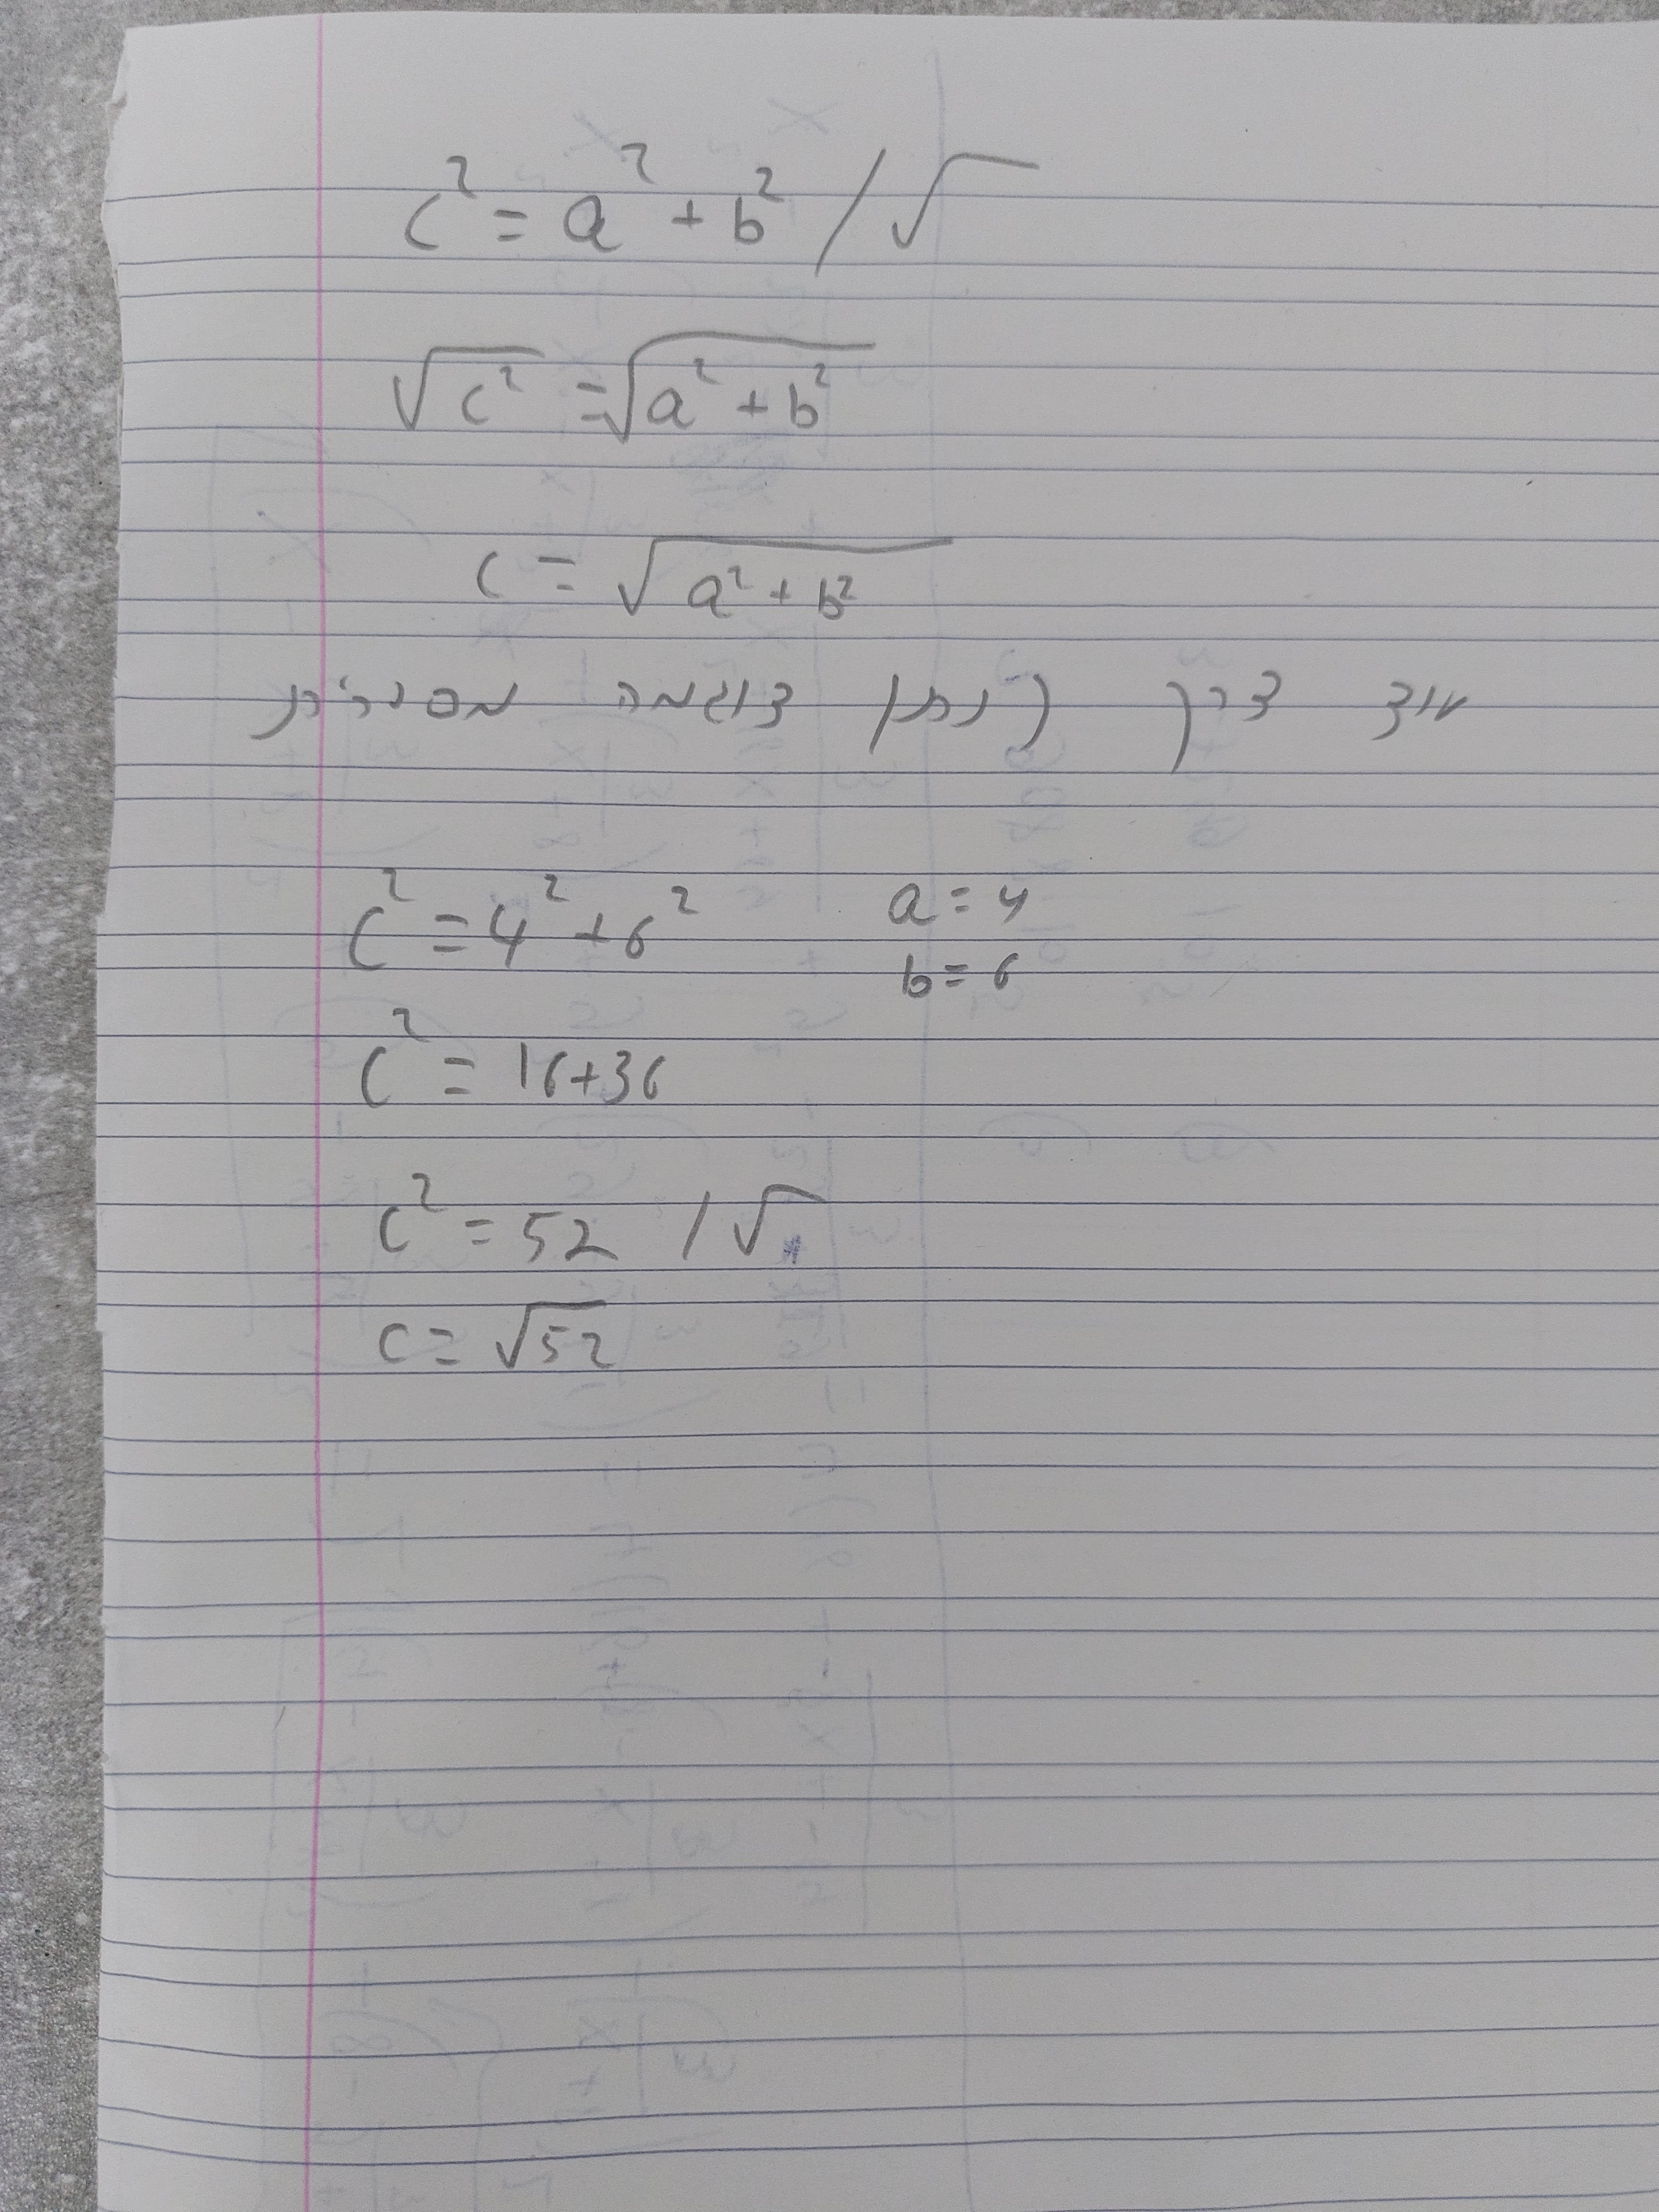 c² = a² + b² / √
√c² = √a² + b²
c = √a² + b²
עוד דרך לתת דוגמה מספרית
c² = 4² + 6² a = 4
b = 6
c² = 16+36
c² = 52 / √
c = √52